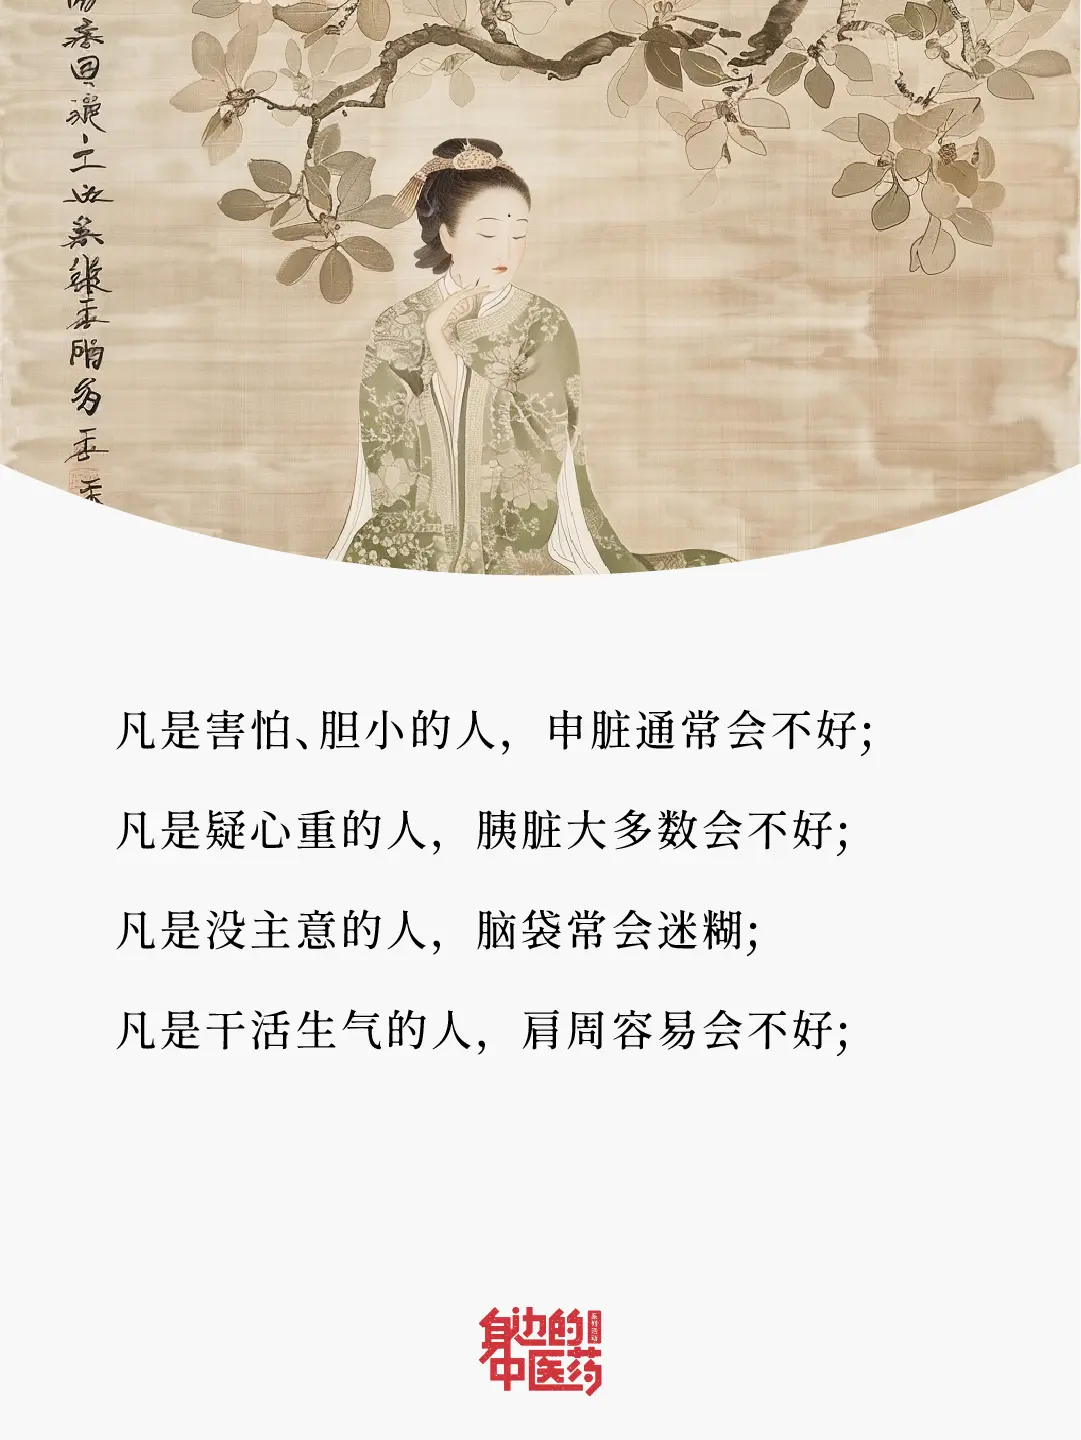 凡是害怕、胆小的人，申脏通常会不好；
凡是疑心重的人，胰脏大多数会不好；
凡是没主意的人，脑袋常会迷糊；
凡是干活生气的人，肩周容易会不好；
身边的
系列活动
中医药